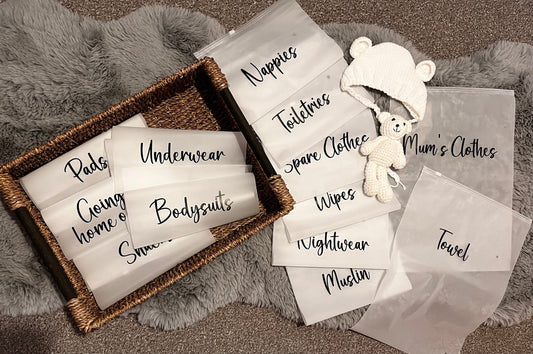 Pads
Going
home o
Underwear
Bodysuits
Nappies
Toiletries
Spare Clothes
Wipes
Nightwear
Muslin
Mum's Clothes
Towel